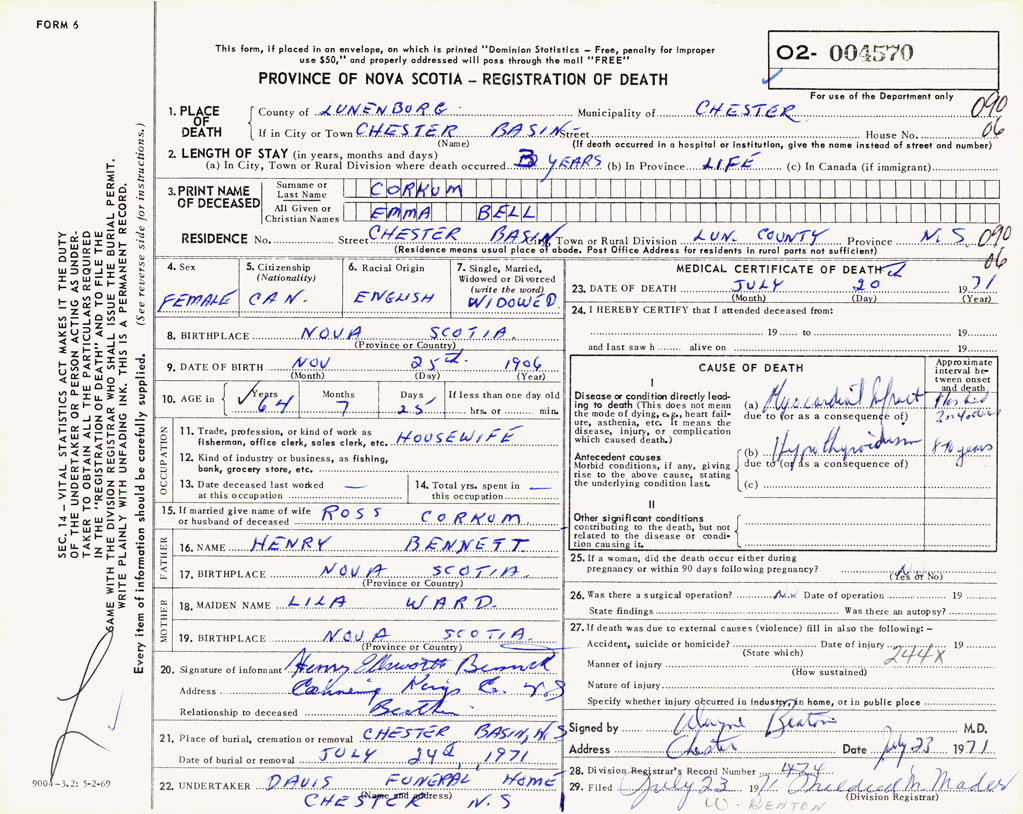 FORM 6
This form, if placed in an envelope, on which is printed "Dominion Statistics – Free, penalty for improper
use $50," and properly addressed will pass through the mail "FREE"
PROVINCE OF NOVA SCOTIA – REGISTRATION OF DEATH
02- 004570
For use of the Department only
090
06
1. PLACE OF DEATH
County of LUNENBURG Municipality of CHESTER
If in City or Town CHESTER BASIN Street House No.
(Name) (If death occurred in a hospital or institution, give the name instead of street and number)
2. LENGTH OF STAY (in years, months and days)
(a) In City, Town or Rural Division where death occurred 3 YEARS (b) In Province LIFE (c) In Canada (if immigrant)
3. PRINT NAME OF DECEASED
Surname or Last Name CORKUM
All Given or Christian Names EMMA BELL
RESIDENCE No. Street CHESTER BASIN City, Town or Rural Division LUN. COUNTY Province N.S
(Residence means usual place of abode. Post Office Address for residents in rural parts not sufficient)
090
06
4. Sex FEMALE
5. Citizenship (Nationality) CAN.
6. Racial Origin ENGLISH
7. Single, Married, Widowed or Divorced (write the word) WIDOWED
8. BIRTHPLACE NOVA SCOTIA.
(Province or Country)
9. DATE OF BIRTH NOV 25th. 1906
(Month) (Day) (Year)
10. AGE in Years 64 Months 7 Days 25 If less than one day old hrs. or min.
OCCUPATION
11. Trade, profession, or kind of work as
fisherman, office clerk, sales clerk, etc. HOUSEWIFE
12. Kind of industry or business, as fishing,
bank, grocery store, etc.
13. Date deceased last worked
at this occupation —
14. Total yrs. spent in
this occupation —
15. If married give name of wife
or husband of deceased ROSS CORKUM
FATHER
16. NAME HENRY BENNETT
17. BIRTHPLACE NOVA SCOTIA.
(Province or Country)
MOTHER
18. MAIDEN NAME LILA WARD.
19. BIRTHPLACE NOVA SCOTIA.
(Province or Country)
20. Signature of informant Henry Ellsworth
Address Canning Kings Co. N.S
Relationship to deceased
21. Place of burial, cremation or removal CHESTER BASIN, N.S
Date of burial or removal JULY 24th, 1971
22. UNDERTAKER DAVIS FUNERAL HOME
(Name and address)
CHESTER N.S
MEDICAL CERTIFICATE OF DEATH
23. DATE OF DEATH JULY 20 1971
(Month) (Day) (Year)
24. I HEREBY CERTIFY that I attended deceased from:
19 to 19
and last saw h alive on 19
CAUSE OF DEATH
Approximate interval between onset and death
I
Disease or condition directly leading to death (This does not mean
the mode of dying, e.g., heart failure, asthenia, etc. It means the
disease, injury, or complication
which caused death.)
(a) Myocardial Infarct
due to (or as a consequence of)
Antecedent causes
Morbid conditions, if any, giving
rise to the above cause, stating
the underlying condition last.
(b) Hypothyroidism years
due to (or as a consequence of)
(c)
II
Other significant conditions
contributing to the death, but not
related to the disease or condition causing it.
25. If a woman, did the death occur either during
pregnancy or within 90 days following pregnancy? No
(Yes or No)
26. Was there a surgical operation? No Date of operation 19
State findings Was there an autopsy?
27. If death was due to external causes (violence) fill in also the following: –
Accident, suicide or homicide? Date of injury 19
(State which) 244X
Manner of injury
(How sustained)
Nature of injury
Specify whether injury occurred in Industry, in home, or in public place
Signed by Wayne Beaton M.D.
Address Chester Date July 23 1971
28. Division Registrar's Record Number 474
29. Filed July 23 1971 Mildred M. Mader
(Division Registrar)
W. BEATON
SEC. 14 – VITAL STATISTICS ACT MAKES IT THE DUTY
OF THE UNDERTAKER OR PERSON ACTING AS UNDER-
TAKER TO OBTAIN ALL THE PARTICULARS REQUIRED
IN THE "REGISTRATION OF DEATH" AND TO FILE THE
SAME WITH THE DIVISION REGISTRAR WHO SHALL ISSUE THE BURIAL PERMIT.
WRITE PLAINLY WITH UNFADING INK. THIS IS A PERMANENT RECORD.
Every item of information should be carefully supplied. (See reverse side for instructions.)
9004-3.2: 5-2-69